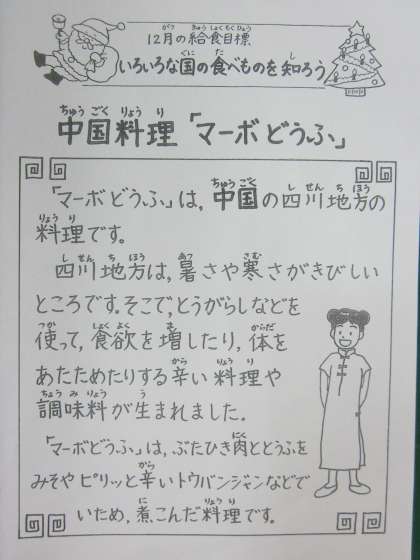 12月の給食目標
いろいろな国の食べものを知ろう
中国料理「マーボどうふ」
「マーボどうふ」は，中国の四川地方の
料理です。
四川地方は，暑さや寒さがきびしい
ところです。そこで，とうがらしなどを
使って，食欲を増したり，体を
あたためたりする辛い料理や
調味料が生まれました。
「マーボどうふ」は，ぶたひき肉ととうふを
みそやピリッと辛いトウバンジャンなどで
いため，煮こんだ料理です。